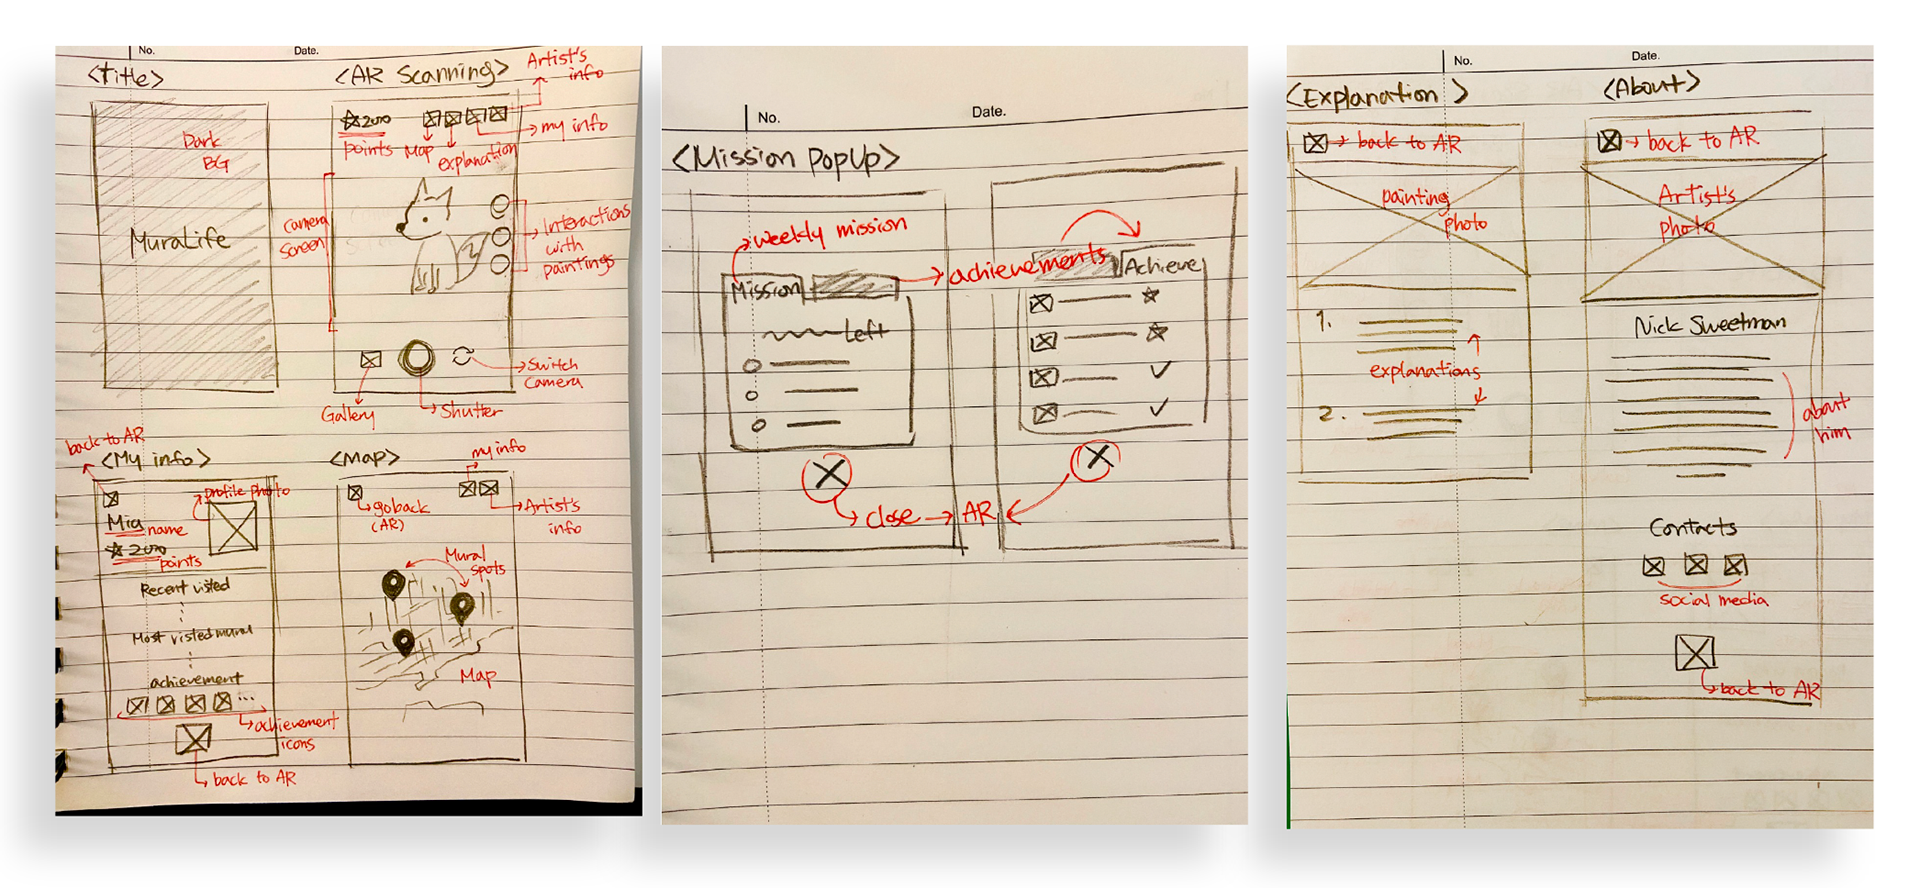 No.
Date.
<Title>
Dark
BG
MuraLife
<AR Scanning>
Artist's
info
2000
points
Map
explanation
my info
camera
screen
Interactions
with
paintings
Gallery
Shutter
Switch
Camera
back to AR
<My info>
profile photo
Mia name
2000
points
Recent visted
Most visted mural
achievement
achievement
icons
back to AR
<Map>
my info
go back
(AR)
Artist's
info
Mural
spots
Map
No.
Date.
<Mission PopUp>
weekly mission
achievements
Mission
Left
Achieve
close → AR
No.
Date.
<Explanation>
back to AR
painting
photo
1.
explanations
2.
<About>
back to AR
Artist's
photo
Nick Sweetman
about
him
Contacts
social media
back to AR